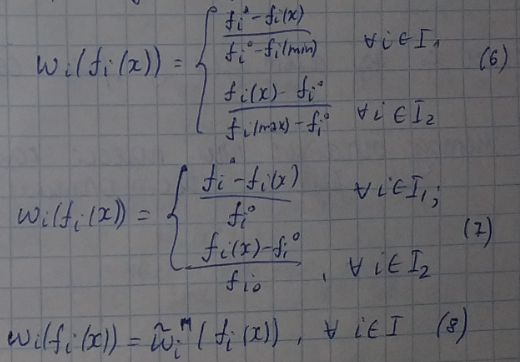 wᵢ(fᵢ(x)) = { (fᵢ° - fᵢ(x)) / (fᵢ° - fᵢ(min)) ∀ i ∈ I₁
(fᵢ(x) - fᵢ°) / (fᵢ(max) - fᵢ°) ∀ i ∈ I₂ (6)
wᵢ(fᵢ(x)) = { (fᵢ° - fᵢ(x)) / fᵢ° ∀ i ∈ I₁;
(fᵢ(x) - fᵢ°) / fᵢ₀ , ∀ i ∈ I₂ (7)
wᵢ(fᵢ(x)) = w̃ᵢᵐ(fᵢ(x)), ∀ i ∈ I (8)